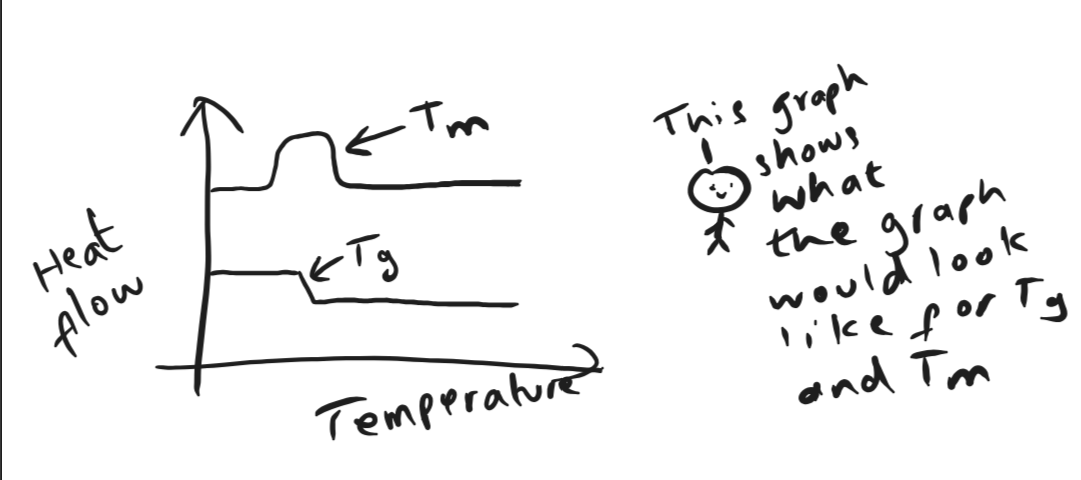 Tm
Tg
Heat
flow
Temperature
This graph
shows
what
the graph
would look
like for Tg
and Tm